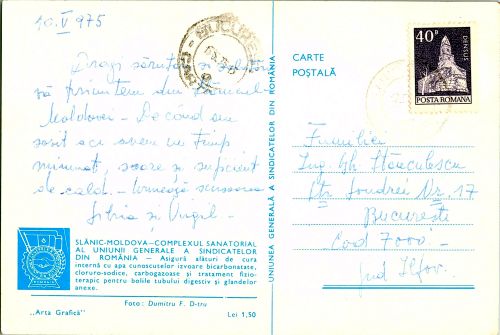 10.V 975
Dragi sărutări și
vă primitem din Slănicul
Moldovei. De când am
sosit aci avem un timp
minunat, soare și suficient
de cald. Urmează scrisoare
Silvia și Virgil
SLĂNIC-MOLDOVA—COMPLEXUL SANATORIAL
AL UNIUNII GENERALE A SINDICATELOR
DIN ROMÂNIA — Asigură alături de cura
internă cu apa cunoscutelor izvoare bicarbonatate,
cloruro-sodice, carbogazoase și tratament fizio-
terapic pentru bolile tubului digestiv și glandelor
anexe.
Foto: Dumitru F. D-tru
„Arta Grafică"
Lei 1,50
UNIUNEA GENERALĂ A SINDICATELOR DIN ROMÂNIA
BUCUREȘTI
CARTE
POȘTALĂ
40B
DENSUS
POSTA ROMANA
Familiei
Ing. Gh. Stănculescu
Str. Londrei Nr. 17
București
Cod 7000
Jud Ilfov.